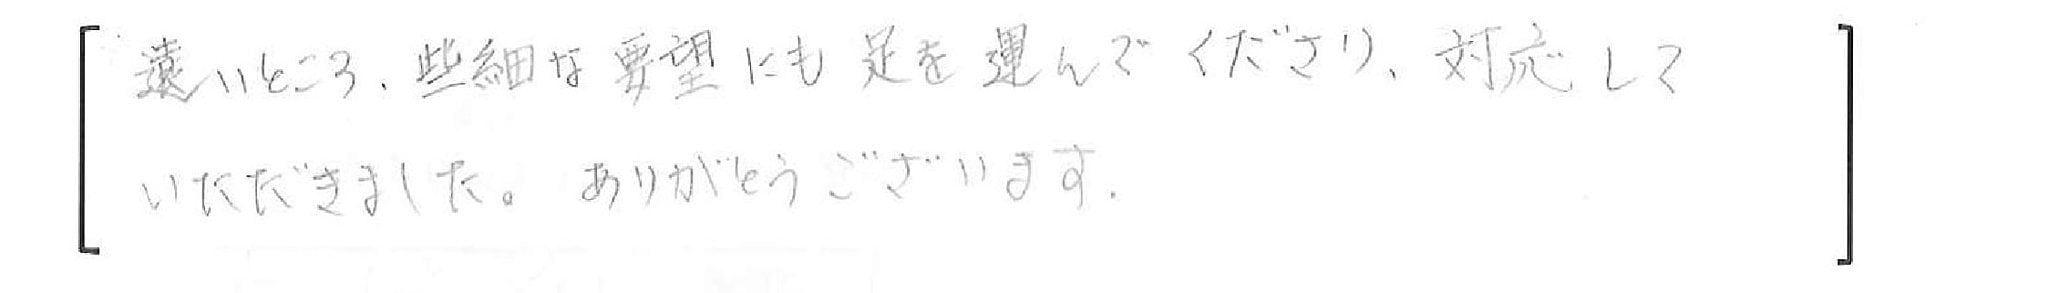 遠いところ、些細な要望にも足を運んでくださり、対応して
いただきました。ありがとうございます.